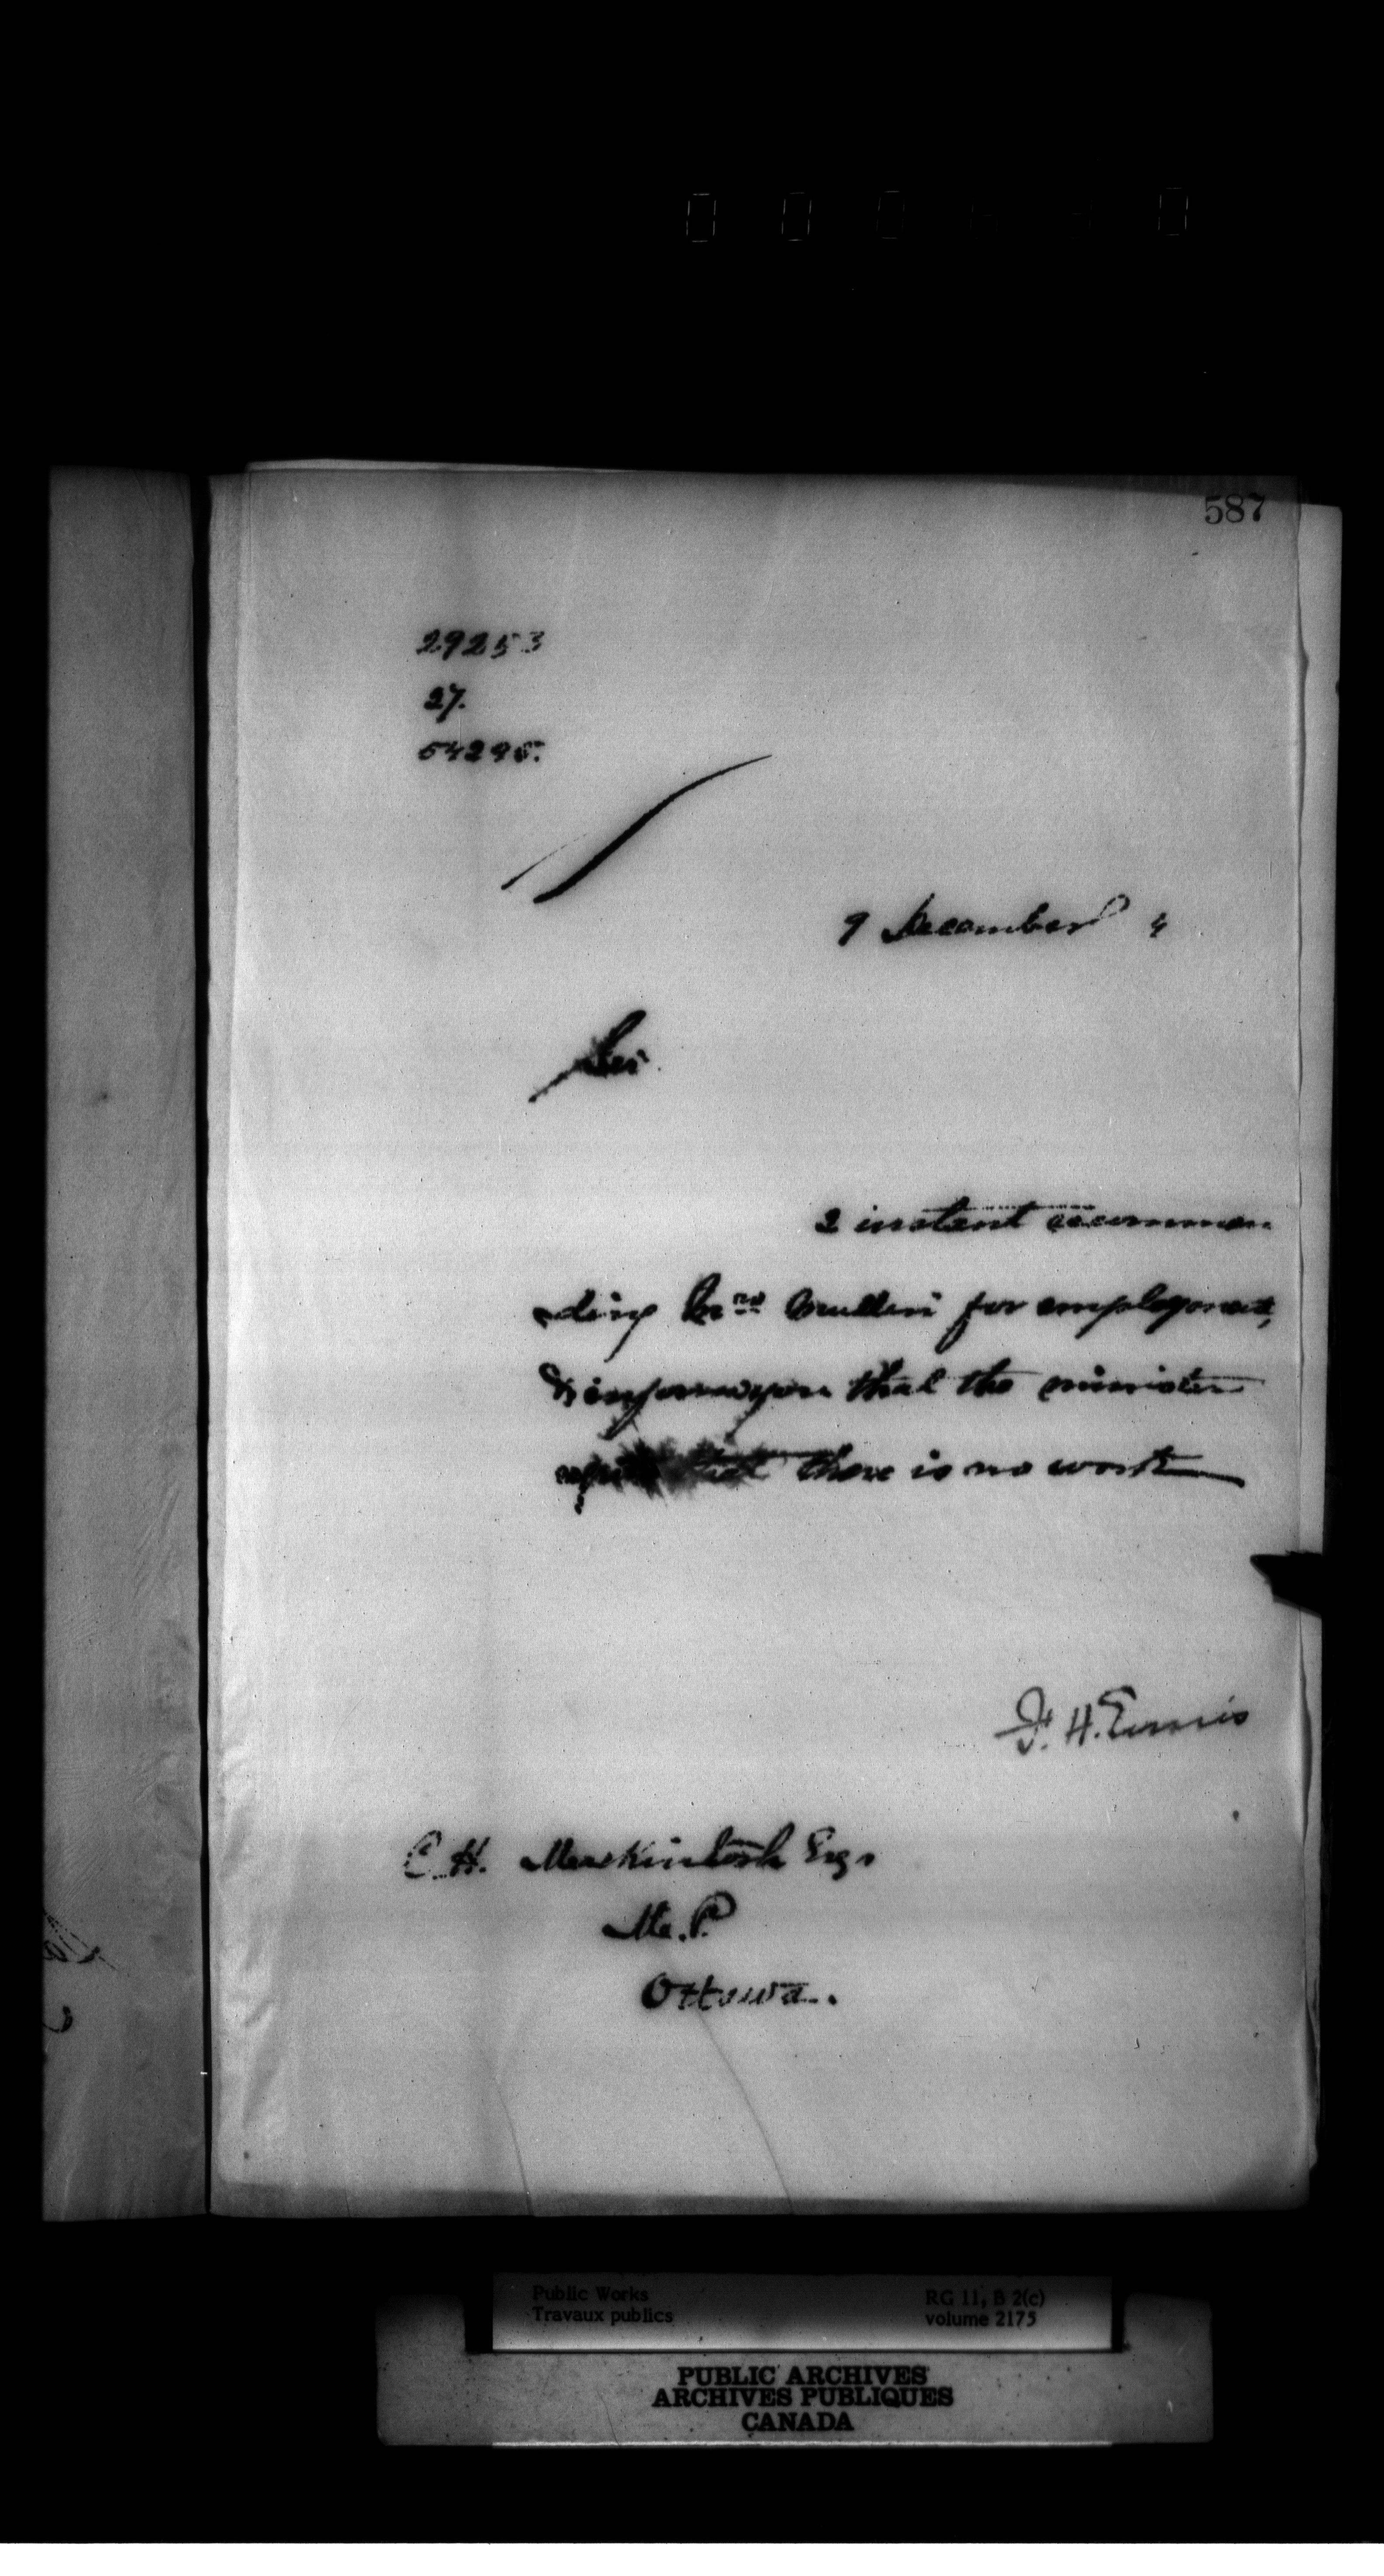 587
29253
27.
54295.
9 December 4
Sir
2 instant recommen
ding Mrs for employment,
& inform you that the minister
that there is no work
F. H. Ennis
C. H. Mackintosh Esq
M. P.
Ottawa.
Public Works
Travaux publics
RG 11, B 2(c)
volume 2175
PUBLIC ARCHIVES
ARCHIVES PUBLIQUES
CANADA